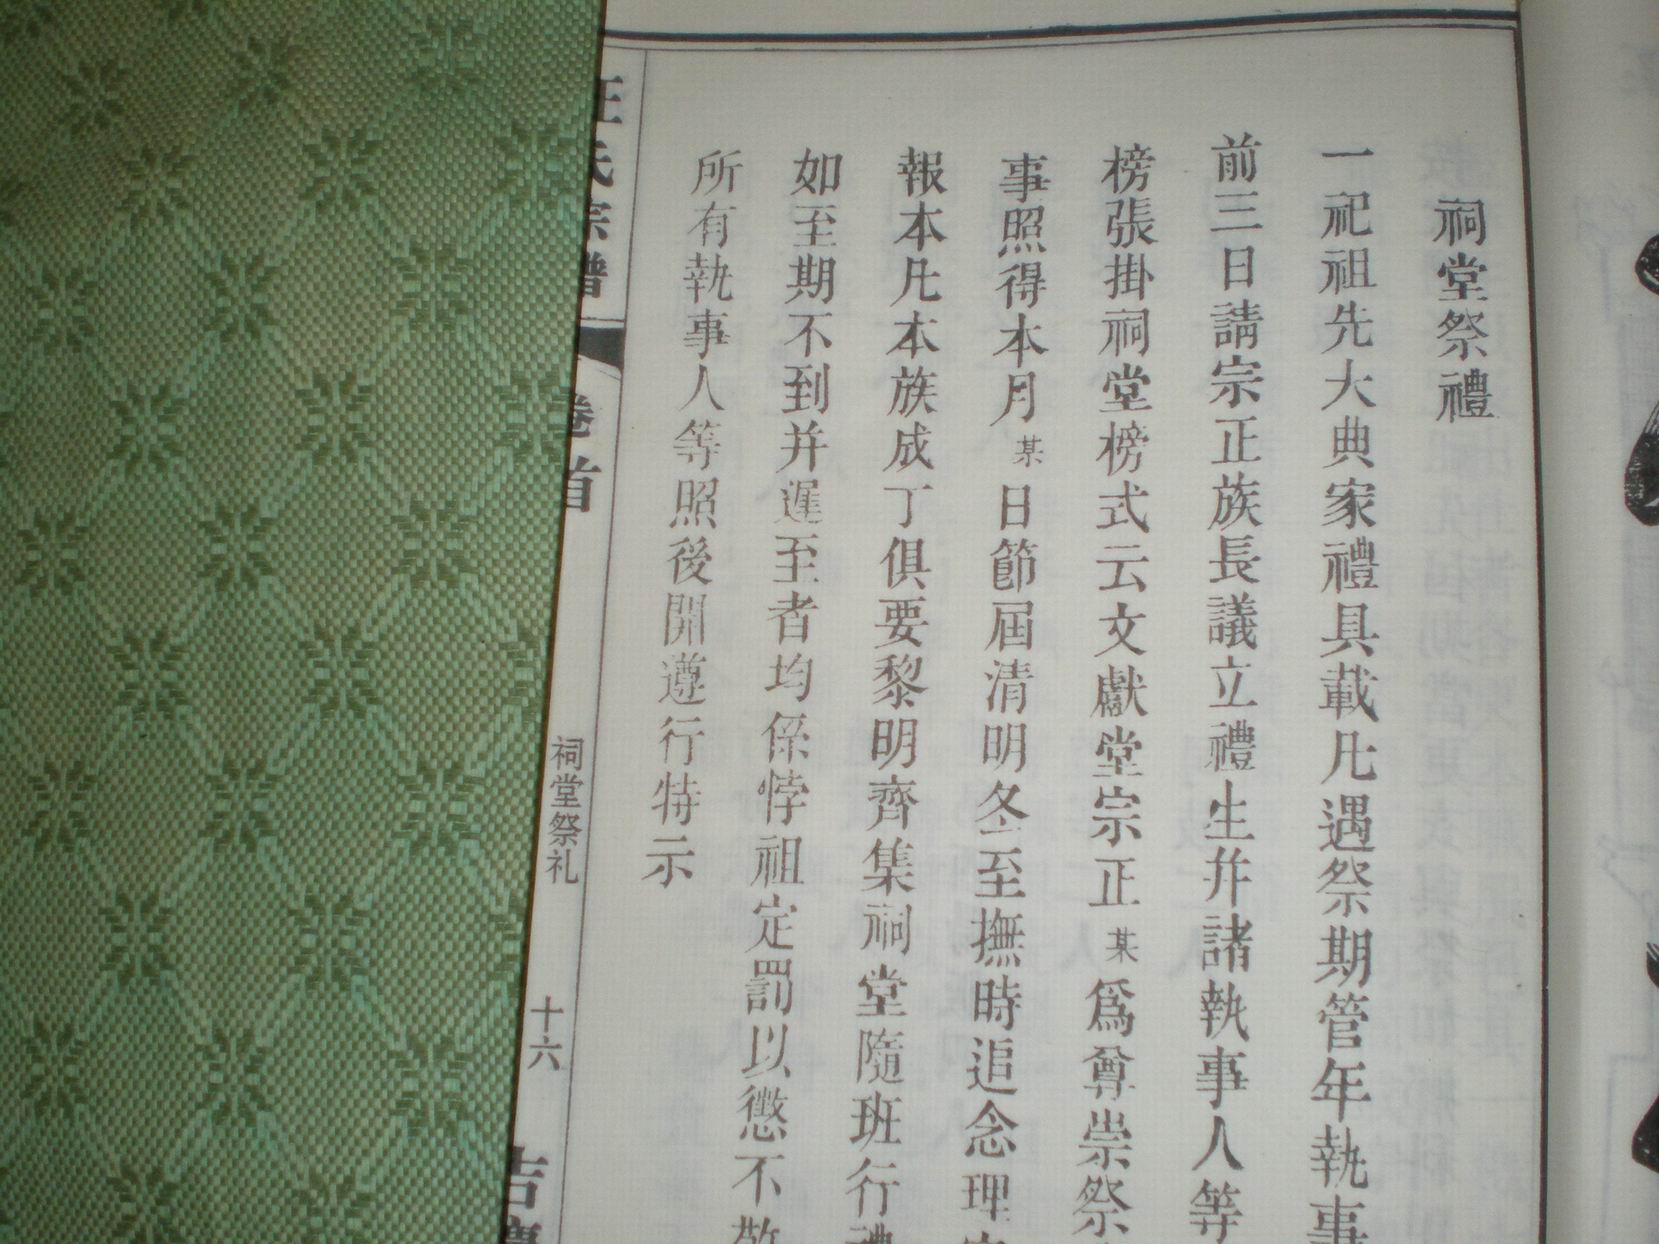 祠堂祭禮
一祀祖先大典家禮具載凡遇祭期管年執事
前三日請宗正族長議立禮生并諸執事人等
榜張掛祠堂榜式云文獻堂宗正某爲尊崇祭
事照得本月某日節屆清明冬至撫時追念理
報本凡本族成丁俱要黎明齊集祠堂隨班行禮
如至期不到并遲至者均係悖祖定罰以懲不敬
所有執事人等照後開遵行特示
汪氏宗譜
卷首
祠堂祭礼
十六